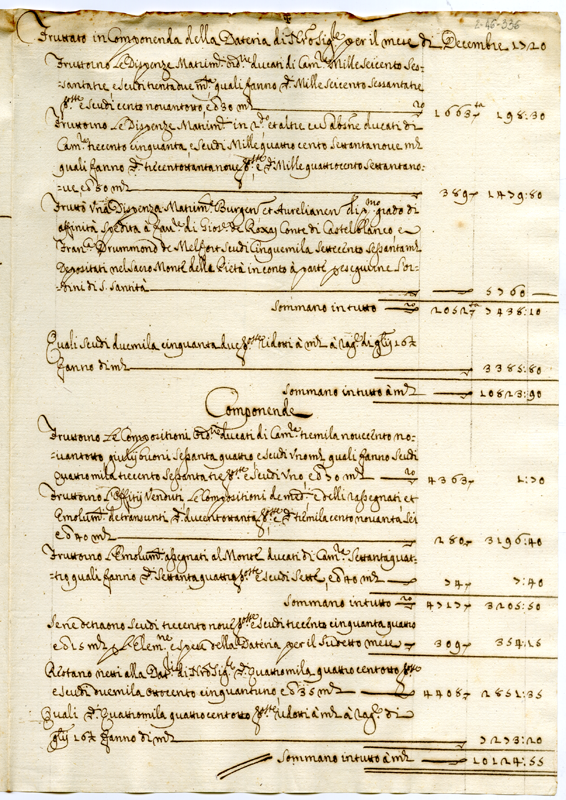 2-46-336
Fruttato in Componenda della Dateria di Nro Sigre per il mese di Decembre 1720
Fruttorno le Dispenze Matrimli ducati di Camra Mille seicento ses-
santatre e scudi trenta due mta quali fanno Mille seicento sessantatre
e scudi cento novantotto, e b 30 mta 1663 198:30
Fruttorno le Dispenze Matrimli in 2do et altre ducati di
Camra trecento cinquanta, e scudi Mille quattro cento settantanove mta
quali fanno trecentottantanove e Mille quattrocento settantano-
ve e b 80 mta 389 1479:80
Fruttò Una Dispenza Matrimle Burgen et Aurelianen di pmo grado di
affinità spedita à favre di Gios. de Roxas Conte di Castelblanco, e
Franca Drummond de Melfort scudi Cinquemila settecento sessanta mta
Depositati nel Sacro Monte della Pietà in conto à parte per eseguirne l'or-
dini di S. Santità 5760
Sommano in tutto 2052 7438:10
Quali scudi duemila cinquanta due ridotti à mta à ragne di gli 16½
fanno di mta 3385:80
Sommano in tutto à mta 10823:90
Componende
Fruttorno le Compositioni ducati di Camra tremila novecento no-
vantotto giulij bioni sessanta quattro e scudi Uno mta quali fanno scudi
quattromila trecento sessanta tre e scudi Uno, e b 70 mta 4363 1:70
Fruttorno li Offitij Venduti le Compositioni de med. e delli rassegnati, et
Emolumti de transunti ducentottanta e tremila cento novanta sei
e b 40 mta 280 3196:40
Fruttorno l'Emolumti assegnati al Monte ducati di Camra settanta quat-
tro, quali fanno settanta quattro e scudi sette, e b 40 mta 74 7:40
Sommano in tutto 4717 3205:50
Se ne detraono scudi trecento nove e scudi trecento cinquanta quattro
e b 15 mta p l'Elemne e spese della Dateria per il sudetto mese 309 354:15
Restano netti alla Datria di Nro Sigre quattromila quattro centotto
e scudi duemila ottocento cinquantuno e b 35 mta 4408 2851:35
Quali quattromila quattro centotto ridotti à mta à ragne di
gli 16½ fanno di mta 7273:20
Sommano in tutto à mta 10124:55